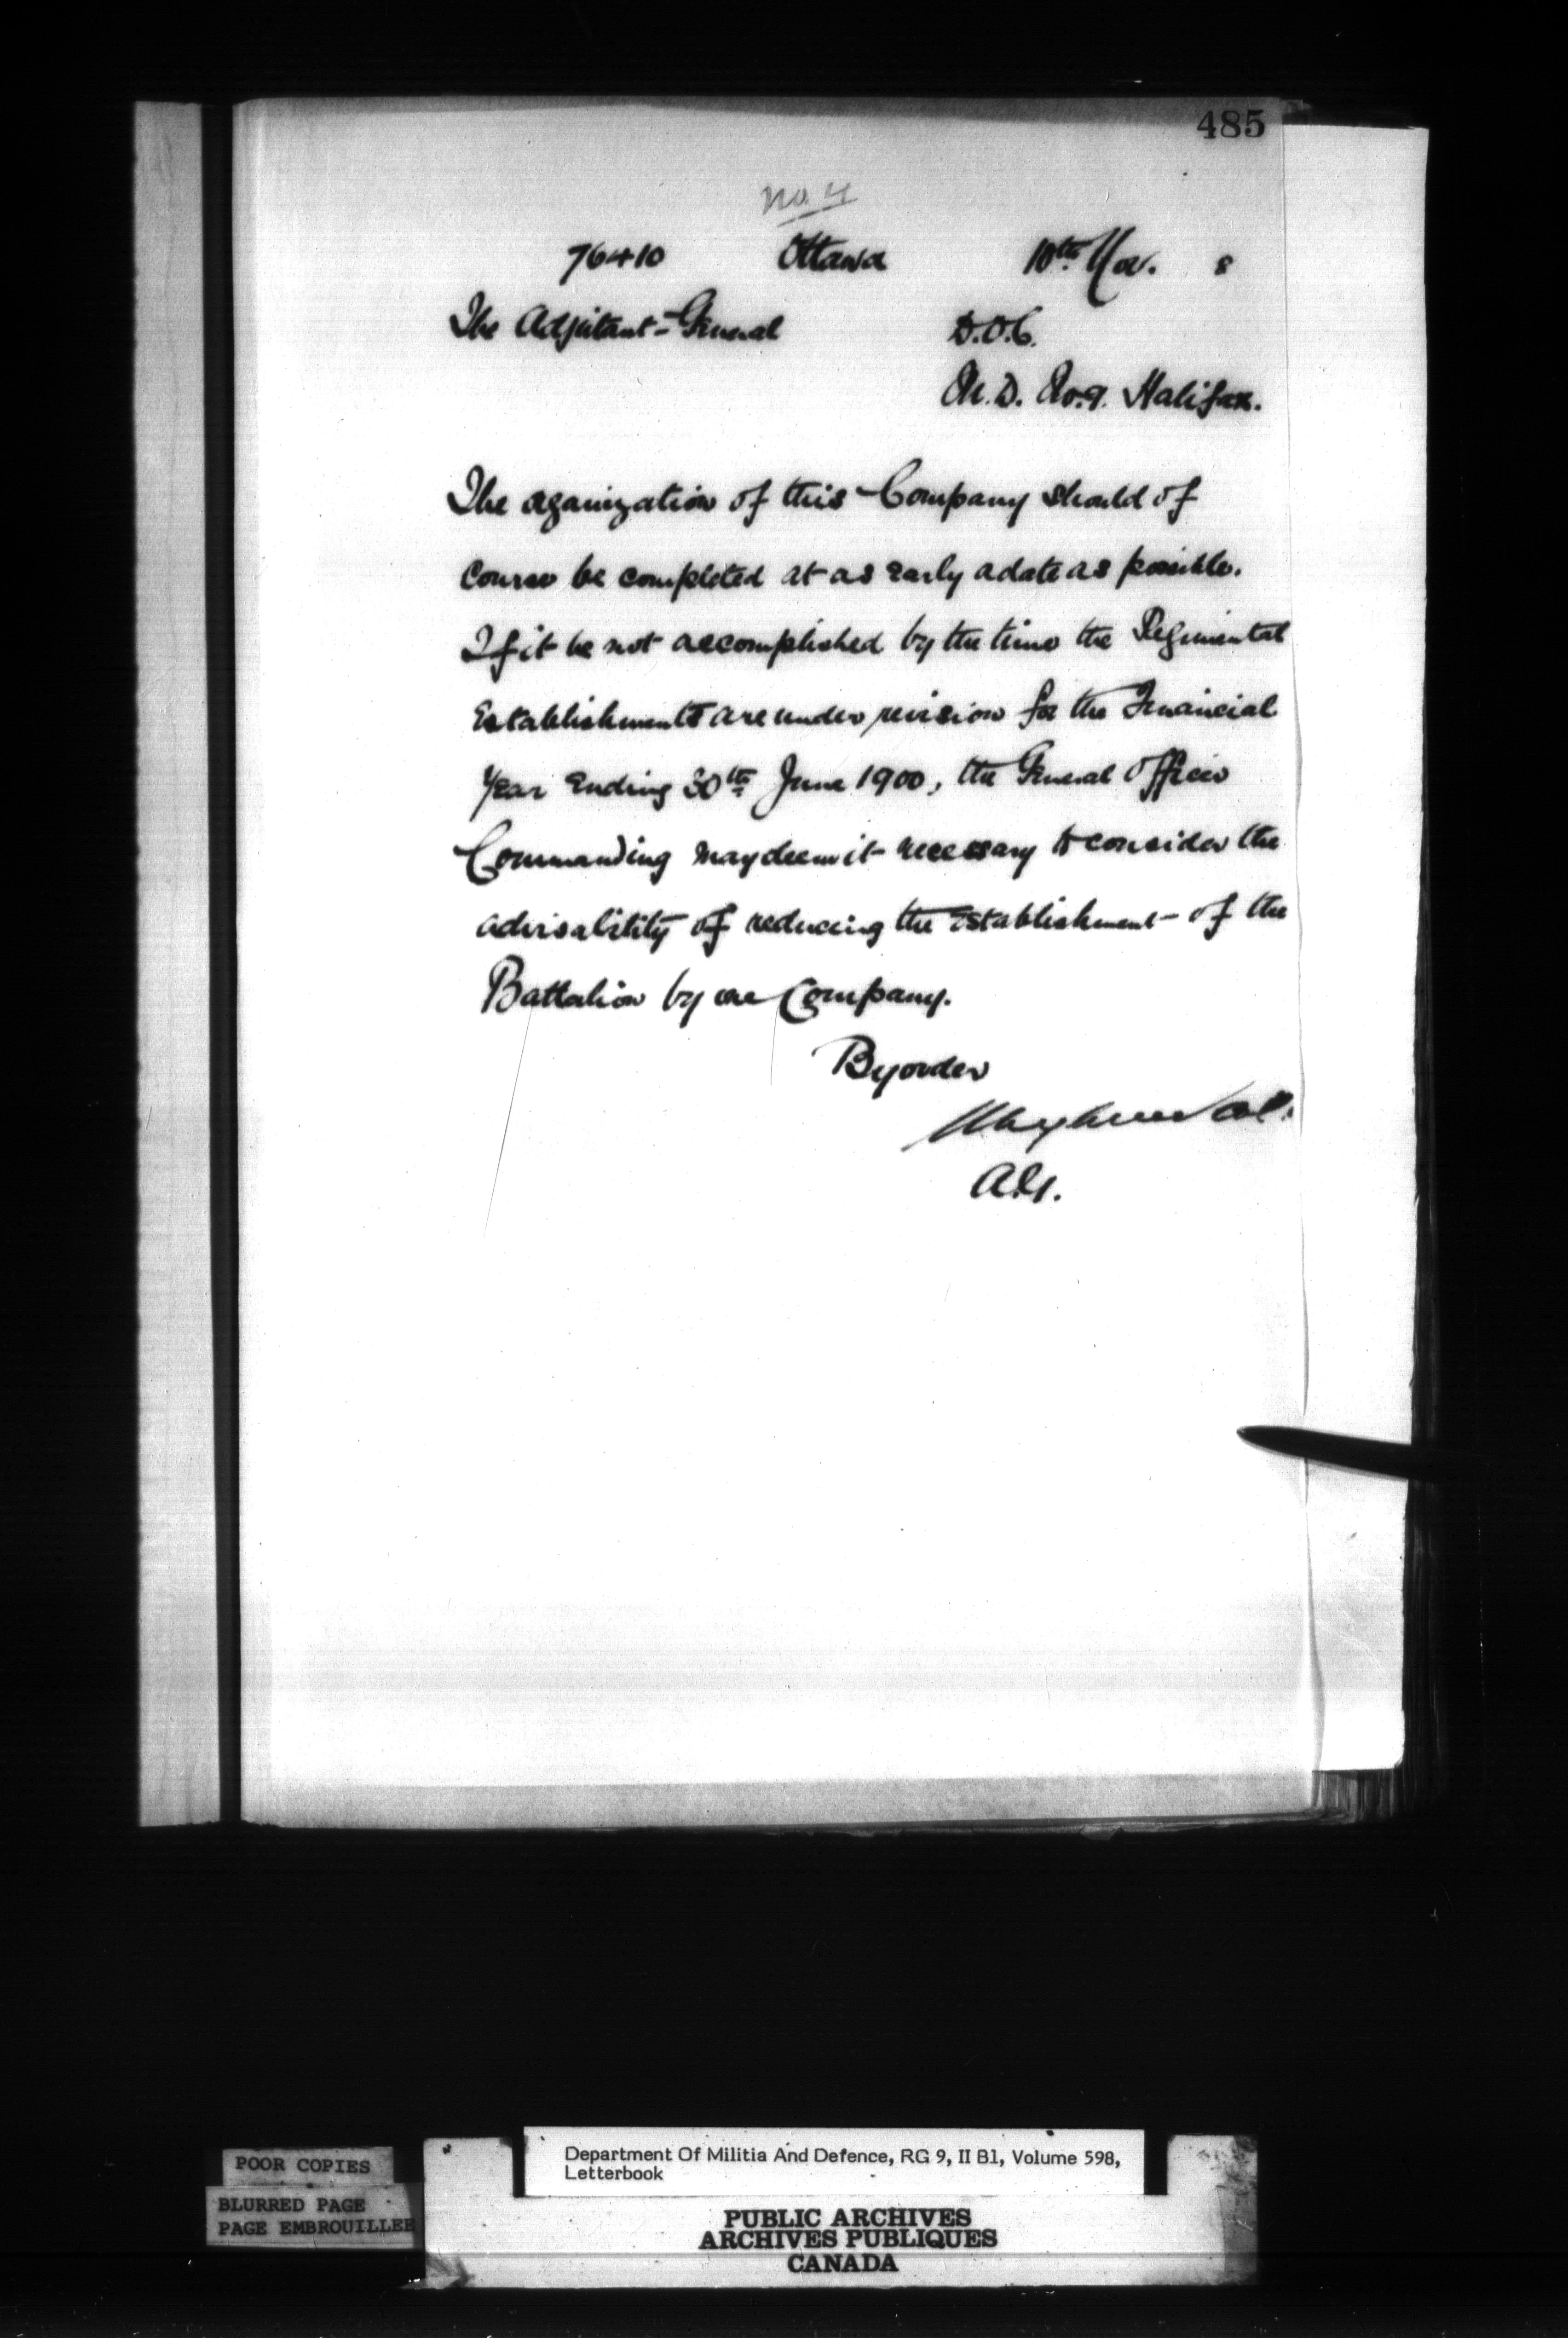 485
No. 4
76410 Ottawa 10th Nov. 8
The Adjutant-General D.O.C.
M.D. No. 9. Halifax.
The organization of this Company should of
course be completed at as early a date as possible.
If it be not accomplished by the time the Regimental
Establishments are under revision for the Financial
Year ending 30th June 1900, the General Officer
Commanding may deem it necessary to consider the
advisability of reducing the establishment of the
Battalion by one Company.
By order
Col.
A.G.
POOR COPIES
BLURRED PAGE
PAGE EMBROUILLEE
Department Of Militia And Defence, RG 9, II B1, Volume 598,
Letterbook
PUBLIC ARCHIVES
ARCHIVES PUBLIQUES
CANADA